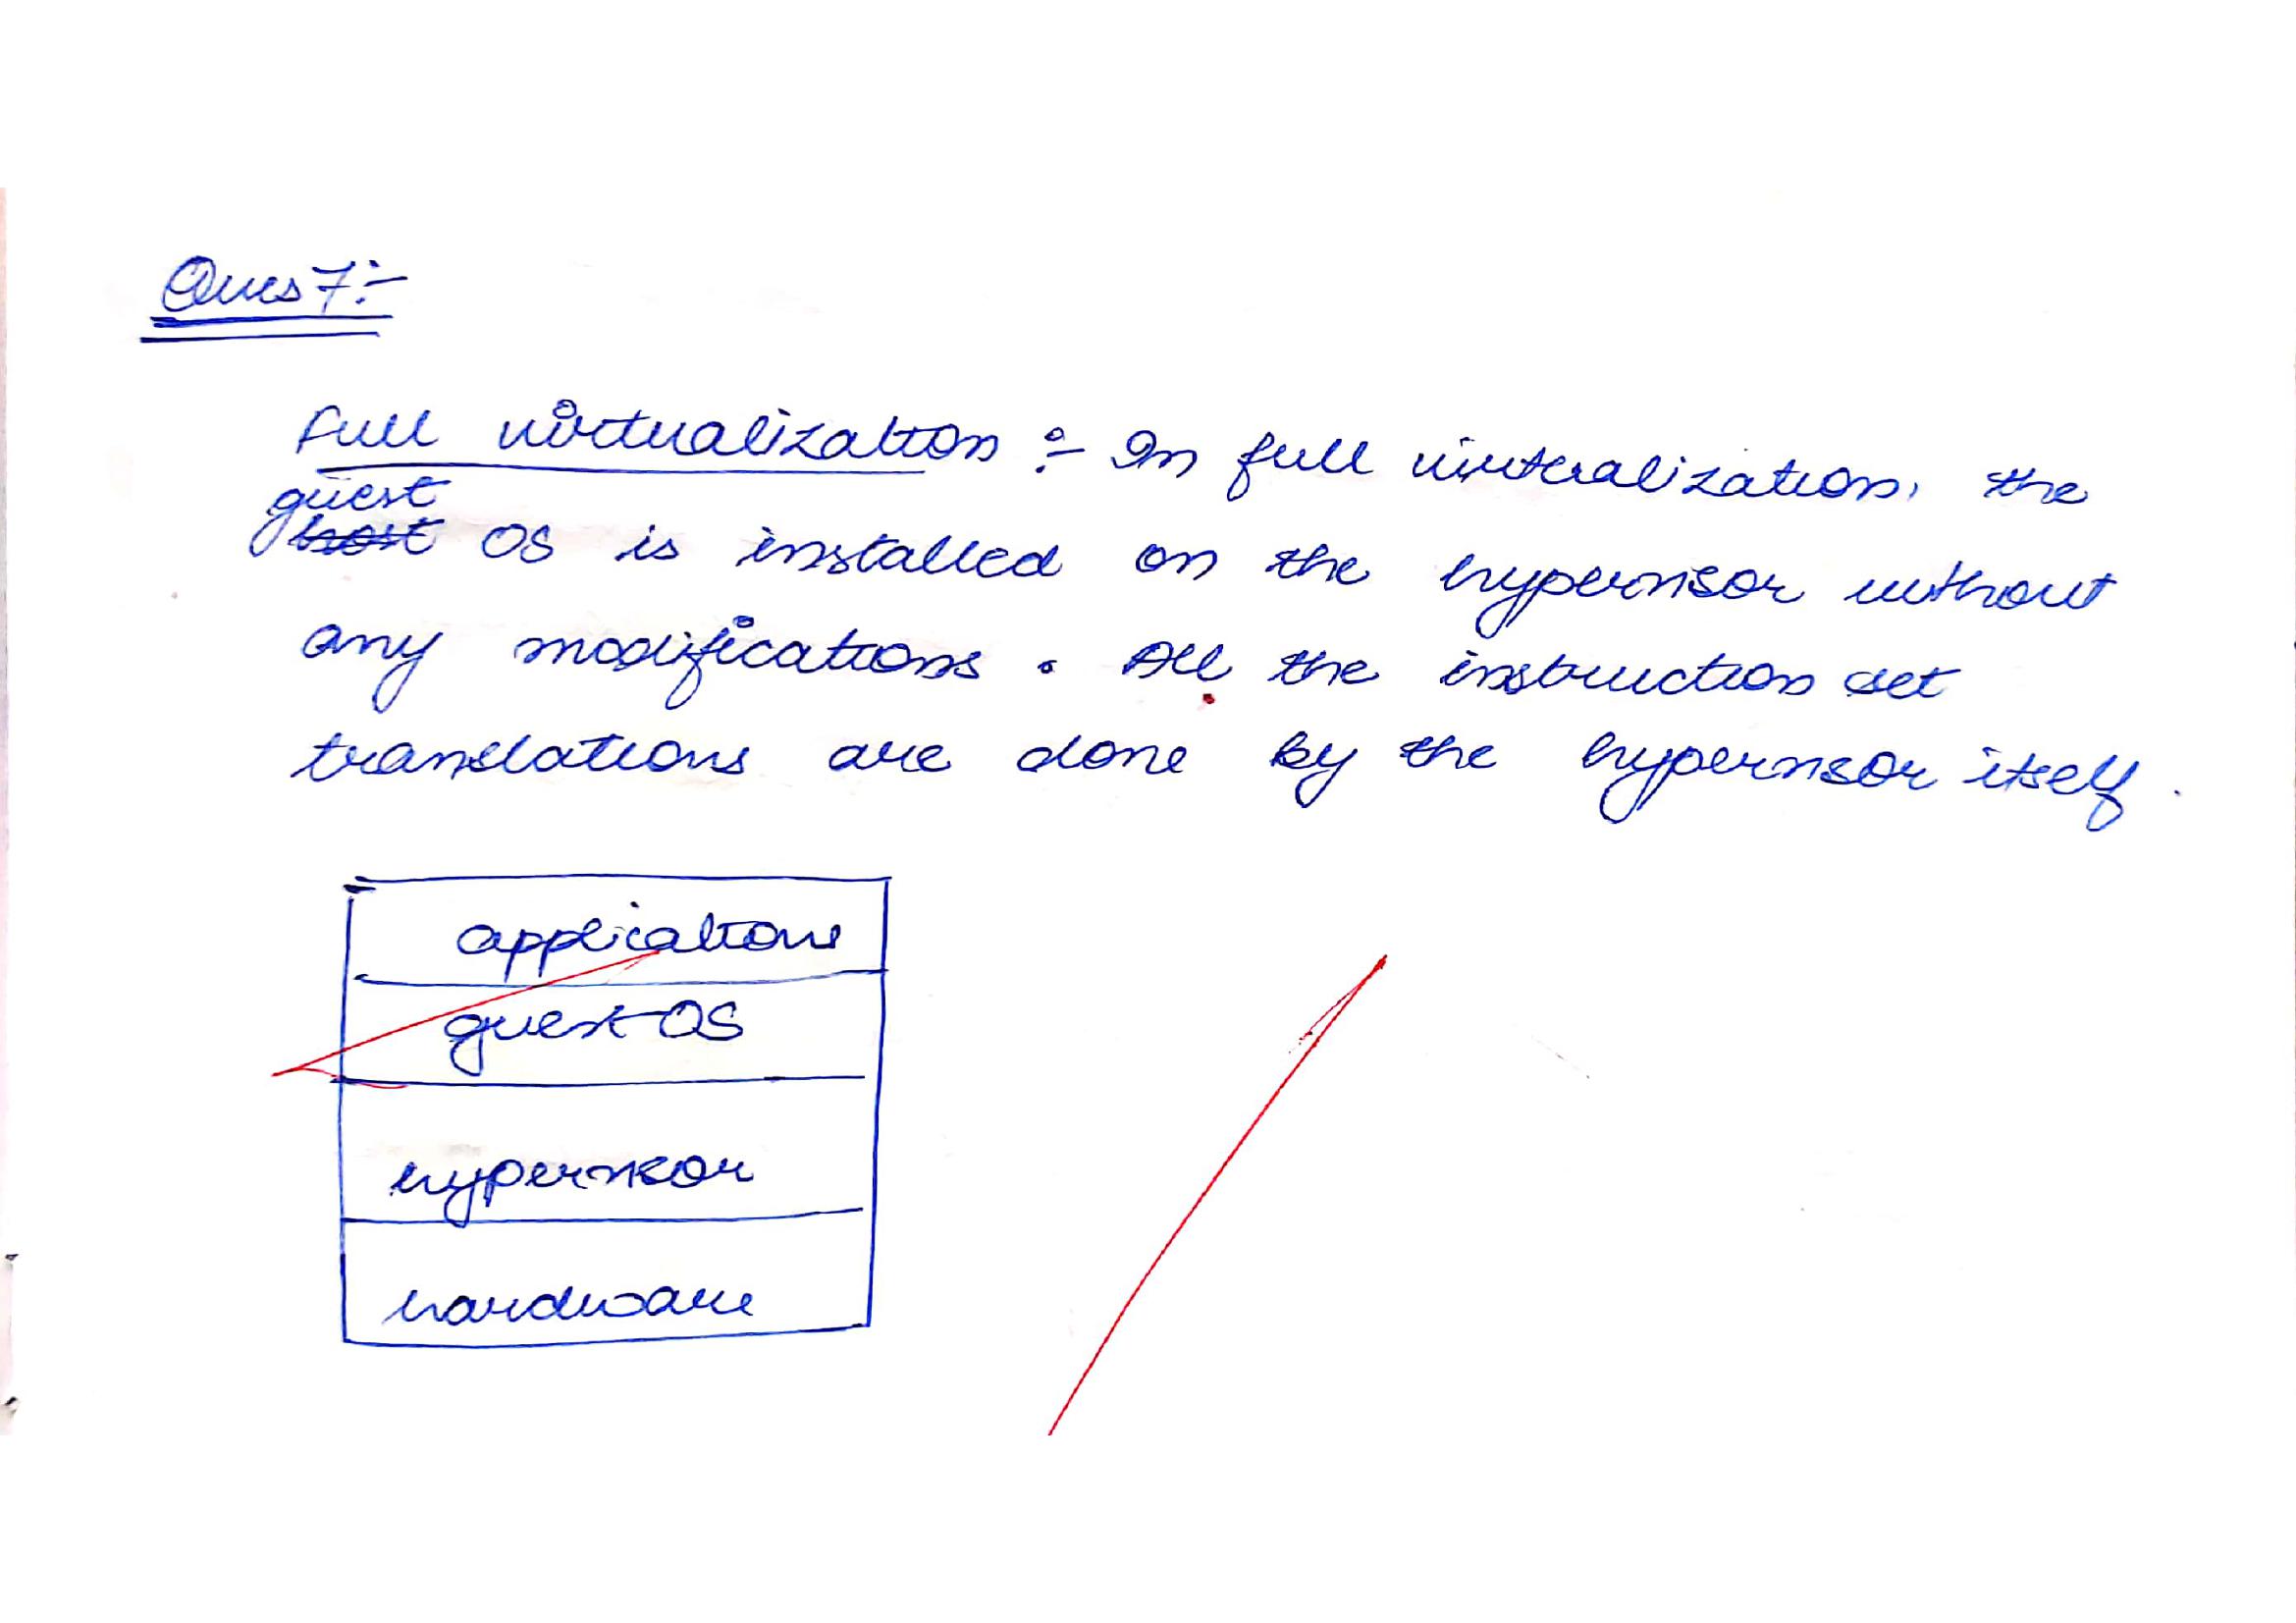 Ques 7:-
Full virtualization :- In full virtualization, the
guest
host OS is installed on the hypervisor without
any modifications. All the instruction set
translations are done by the hypervisor itself.
applications
guest OS
hypervisor
hardware